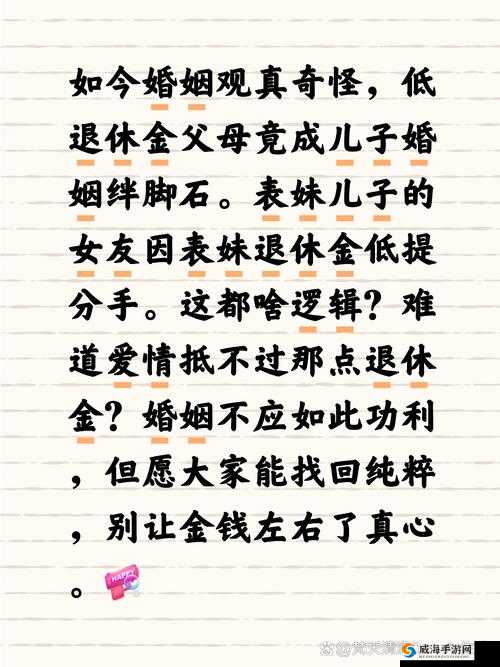 如今婚姻观真奇怪，低
退休金父母竟成儿子婚
姻绊脚石。表妹儿子的
女友因表妹退休金低提
分手。这都啥逻辑？难
道爱情抵不过那点退休
金？婚姻不应如此功利
，但愿大家能找回纯粹
，别让金钱左右了真心
。
HAPPY
威海手游网